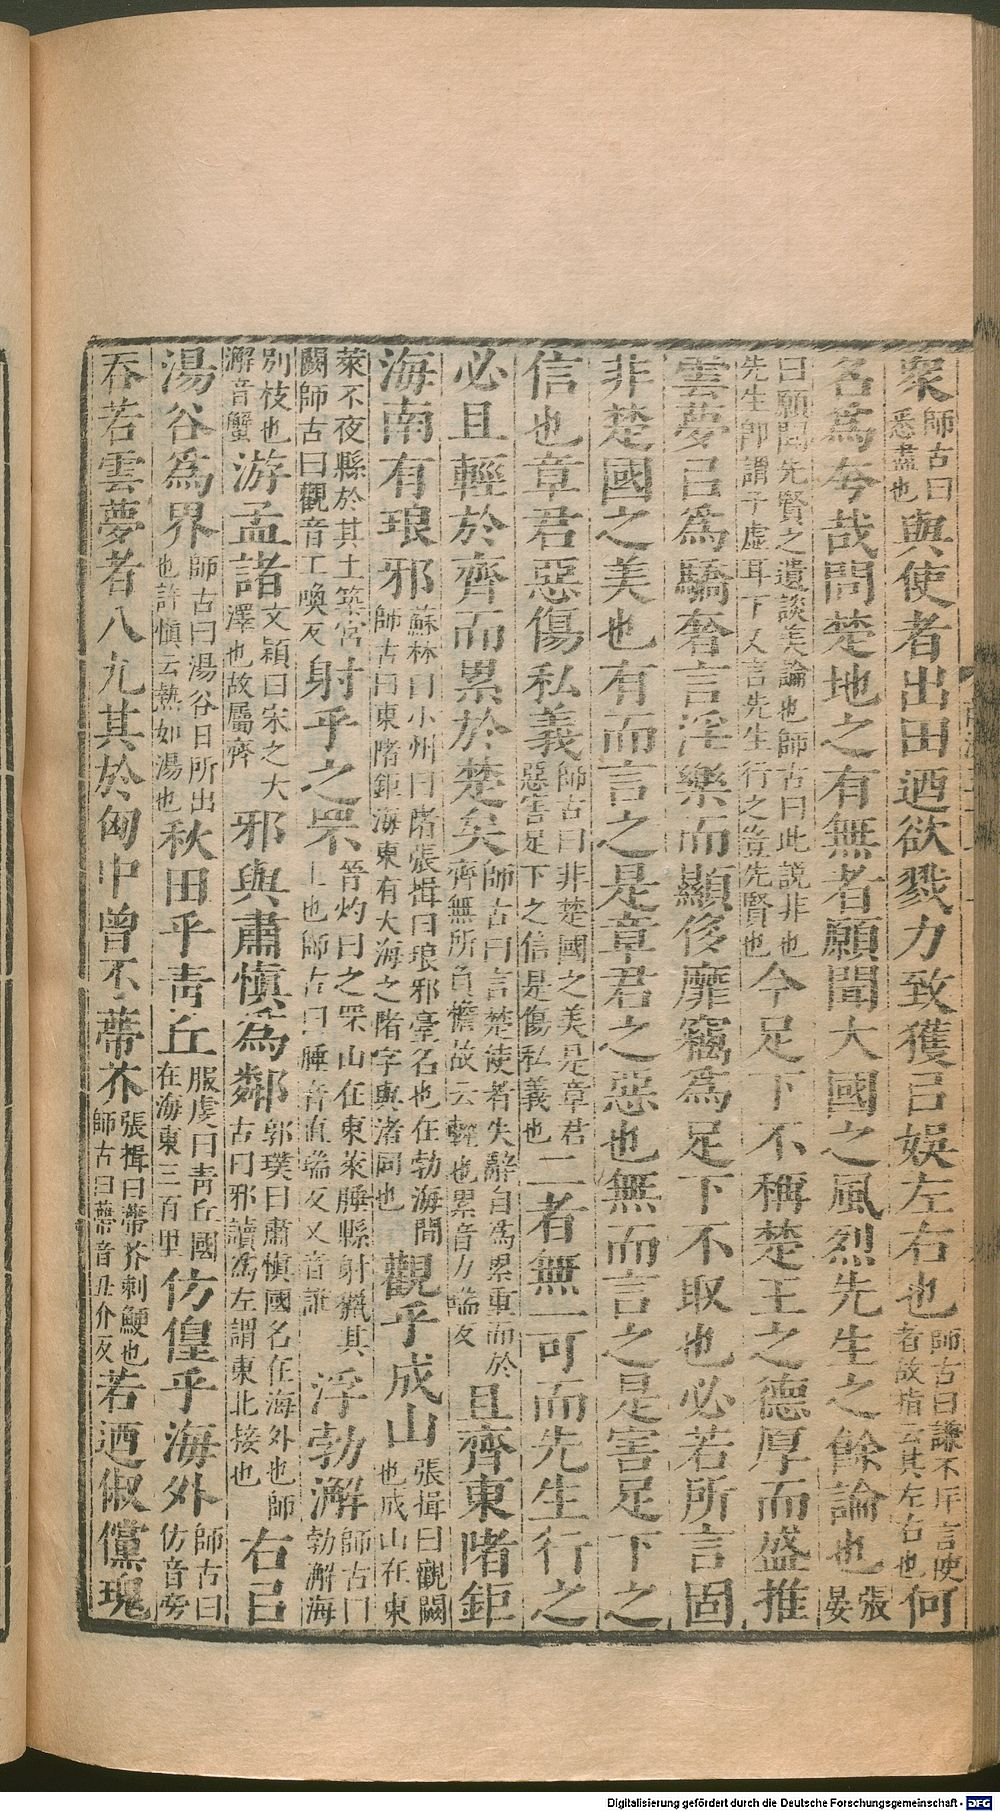 衆師古曰悉盡也與使者出田迺欲戮力致獲㠯娛左右也師古曰謙不斥言使者故指云其左右也何
名爲夸哉問楚地之有無者願聞大國之風烈先生之餘論也張晏
曰願聞先賢之遺談美論也師古曰此說非也先生卽謂子虛耳下又言先生行之豈先賢也今足下不稱楚王之德厚而盛推
雲夢㠯爲驕奢言淫樂而顯侈靡竊爲足下不取也必若所言固
非楚國之美也有而言之是章君之惡也無而言之是害足下之
信也章君惡傷私義師古曰非楚國之美是章君惡害足下之信是傷私義也二者無一可而先生行之
必且輕於齊而累於楚矣師古曰言楚使者失辭自爲累重而於齊無所負檐故云輕也累音力瑞反且齊東陼鉅
海南有琅邪蘇林曰小州曰陼張揖曰琅邪臺名也在勃海間師古曰東陼鉅海東有大海之陼字與渚同也觀乎成山張揖曰觀闕也成山在東
萊不夜縣於其上築宮闕師古曰觀音工喚反射乎之罘晉灼曰之罘山在東萊腄縣射獵其上也師古曰腄音直瑞反又音誰浮勃澥師古曰勃澥海
別枝也澥音蟹游孟諸文穎曰宋之大澤也故屬齊邪與肅愼爲鄰郭璞曰肅愼國名在海外也師古曰邪讀爲左謂東北接也右㠯
湯谷爲界師古曰湯谷日所出也許愼云熱如湯也秋田乎靑丘服虔曰靑丘國在海東三百里仿偟乎海外師古曰仿音旁
吞若雲夢者八九其於匈中曾不蔕芥張揖曰蔕芥刺鯁也師古曰蔕音丑介反若迺俶儻瑰
Digitalisierung gefördert durch die Deutsche Forschungsgemeinschaft - DFG